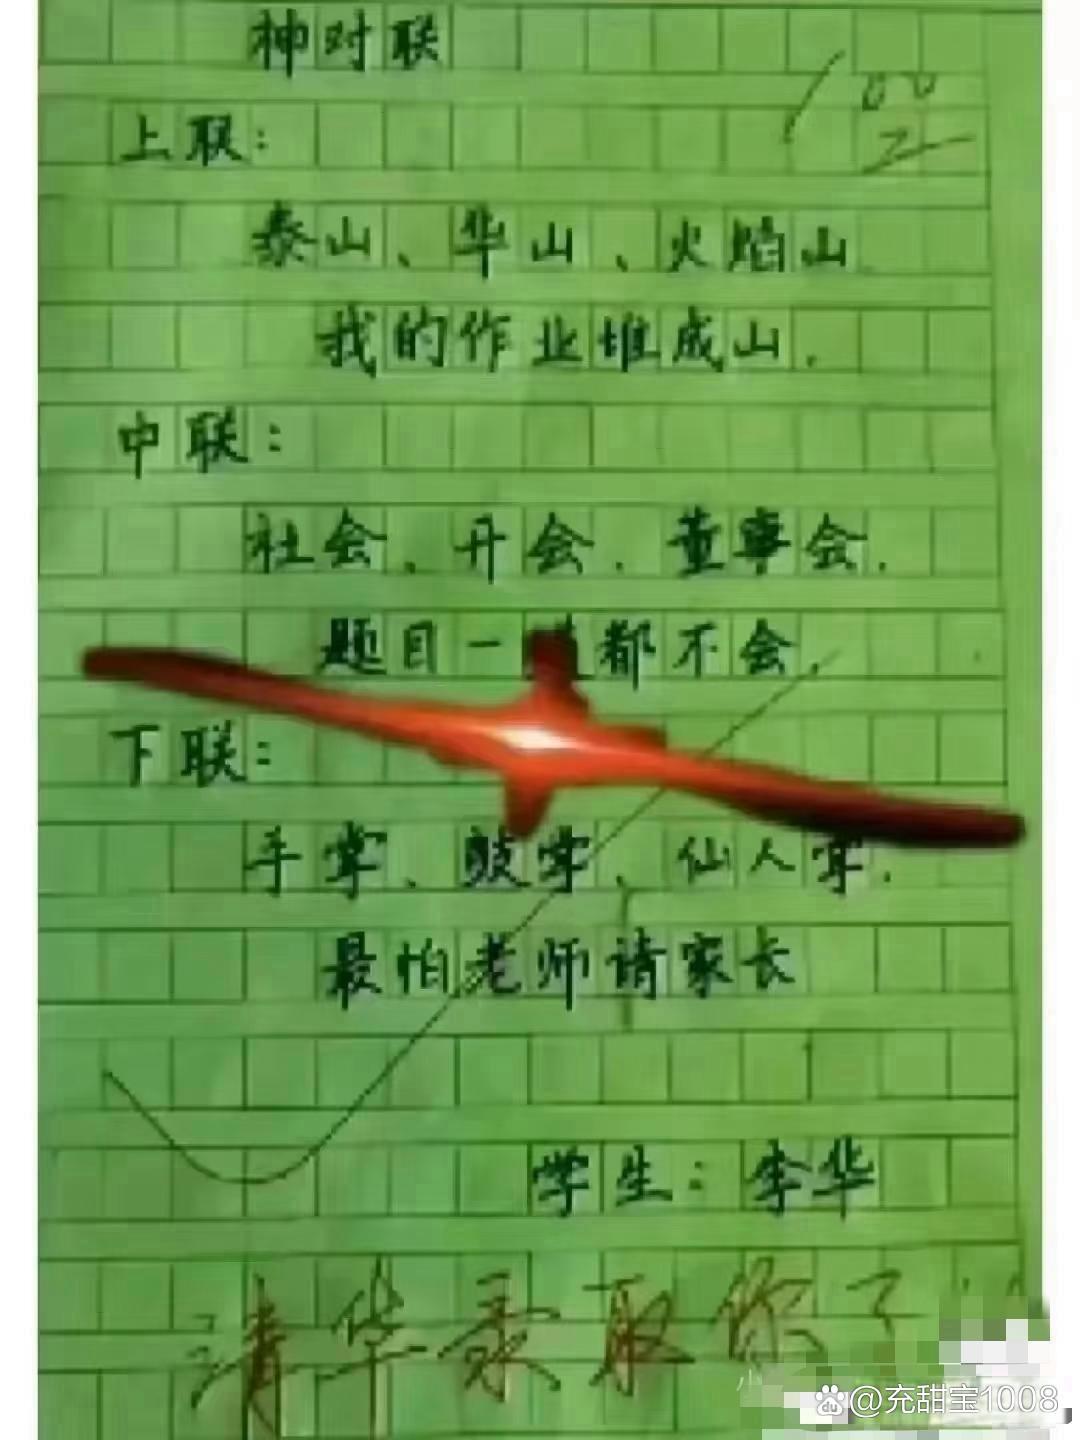 神对联
100
上联:
泰山、华山、火焰山
我的作业堆成山.
中联:
社会、开会.董事会.
题目一道都不会.
下联:
手掌、鼓掌、仙人掌.
最怕老师请家长
学生:李华
清华录取你了
小
@充甜宝1008